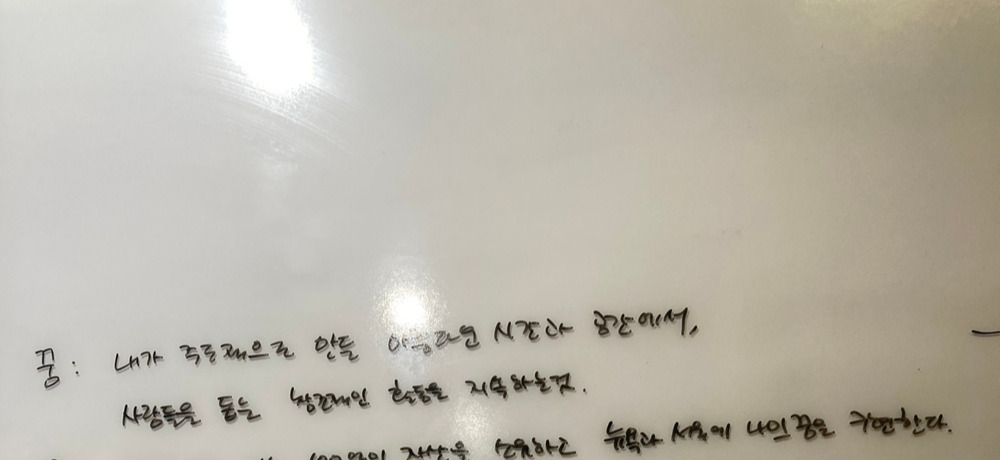 꿈: 내가 주도적으로 만들 아름다운 시간과 공간에서,
사람들을 돕는 창조적인 활동을 지속하는것.
자산을 소유하고 뉴욕과 서울에 나의 꿈을 구현한다.